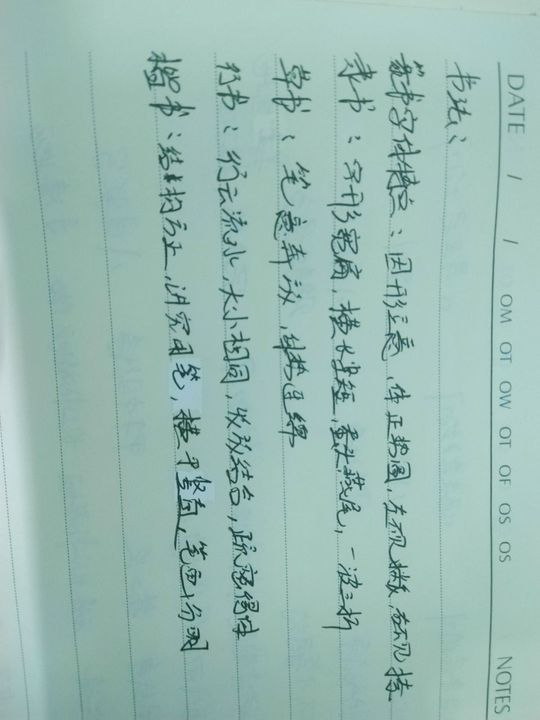 DATE / / OM OT OW OT OF OS OS NOTES
书法:
篆书字体特点:因形立意,体正势圆,左不见撇,右不见捺
隶书:字形宽扁,横长竖短,蚕头燕尾,一波三折
草书:笔意奔放,结构连绵
行书:行云流水,大小相同,收放结合,疏密得体
楷书:结构方正,讲究用笔,横平竖直,笔画分明